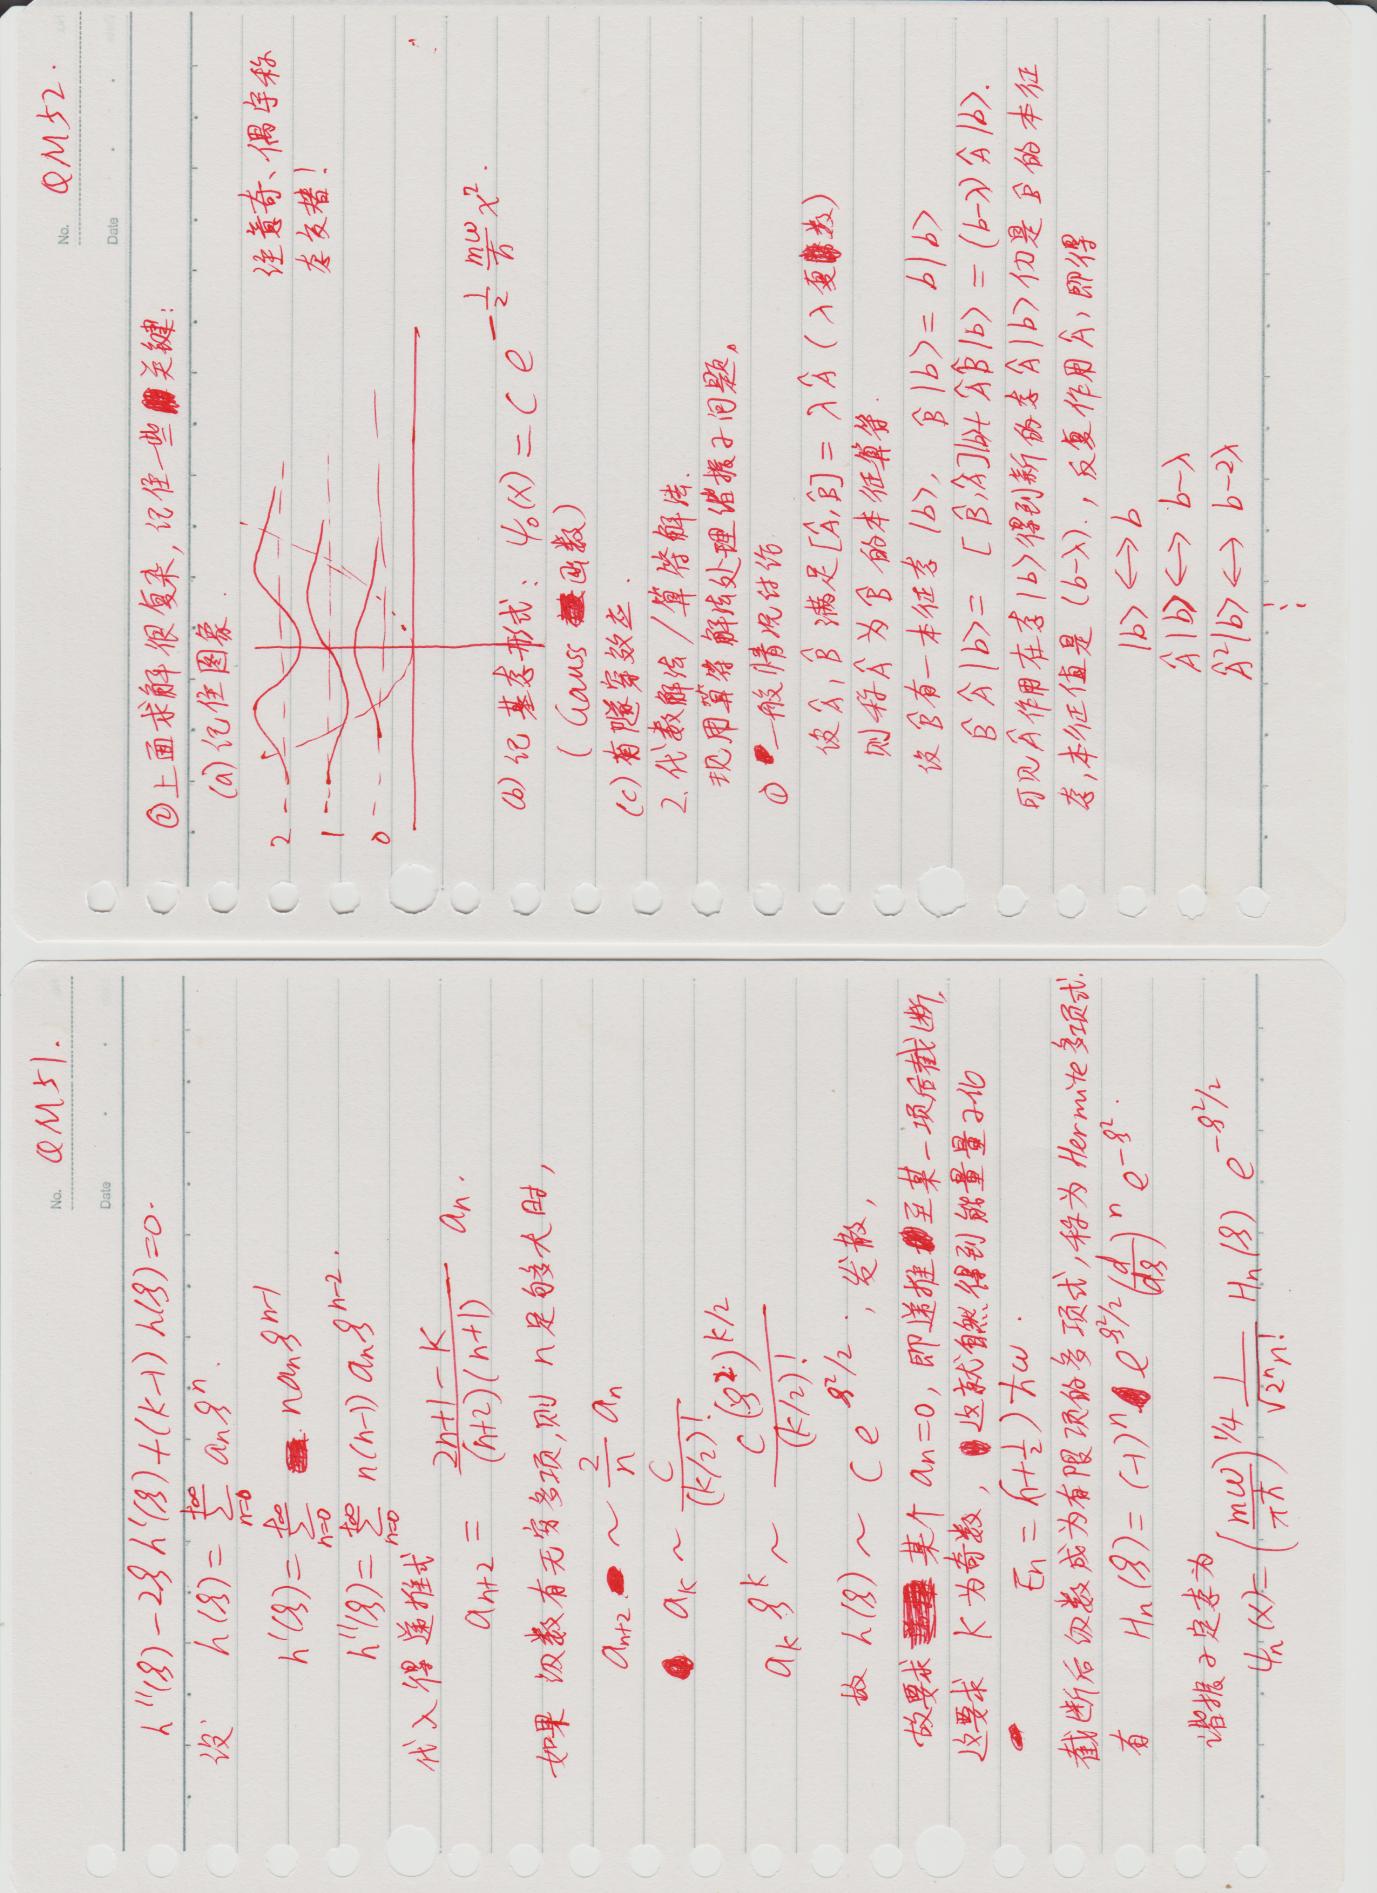 No. QM51.
Date
h''(ξ) - 2ξ h'(ξ) + (K-1) h(ξ) = 0.
设 h(ξ) = Σ_{n=0}^{+∞} aₙ ξⁿ.
h'(ξ) = Σ_{n=0}^{+∞} n aₙ ξ^{n-1}
h''(ξ) = Σ_{n=0}^{+∞} n(n-1) aₙ ξ^{n-2}.
代入得递推式
a_{n+2} = \frac{2n+1-K}{(n+2)(n+1)} aₙ.
如果 级数有无穷多项,则 n足够大时,
a_{n+2} ~ \frac{2}{n} aₙ
a_K ~ \frac{C}{(K/2)!}
a_K ξ^K ~ \frac{C(ξ²)^{K/2}}{(K/2)!}
故 h(ξ) ~ C e^{ξ²/2}, 发散,
故要求 某个 aₙ=0, 即递推至某一项后截断,
这要求 K 为奇数, 这就自然得到能量量子化
Eₙ = (n+\frac{1}{2})ℏω.
截断后级数成为有限项的多项式,称为Hermite多项式.
有 Hₙ(ξ) = (-1)ⁿ e^{ξ²/2} (\frac{d}{dξ})ⁿ e^{-ξ²}.
谐振子定态为
ψₙ(x) = (\frac{mω}{πℏ})^{1/4} \frac{1}{\sqrt{2ⁿn!}} Hₙ(ξ) e^{-ξ²/2}
No. QM52.
Date
②上面求解很复杂,记住一些关键:
(a)记住图象.
2
1
0
注意奇、偶宇称
态交替!
(b) 记 基态形式: ψ₀(x) = C e^{-\frac{1}{2}\frac{mω}{ℏ}x²}.
(Gauss 函数)
(c)有隧穿效应.
2.代数解法/算符解法.
现用算符解法处理谐振子问题。
① 一般情况讨论
设Â, B̂ 满足[Â,B̂] = λÂ (λ复数)
则称Â为B̂的本征算符.
设B̂有一本征态|b⟩, B̂|b⟩ = b|b⟩
B̂Â|b⟩ = [B̂,Â]|b⟩+ÂB̂|b⟩ = (b-λ)Â|b⟩.
可见Â作用在态|b⟩得到新的态Â|b⟩仍是B̂的本征
态,本征值是(b-λ)., 反复作用Â, 即得
|b⟩ ↔ b
Â|b⟩ ↔ b-λ
²|b⟩ ↔ b-2λ
⋮